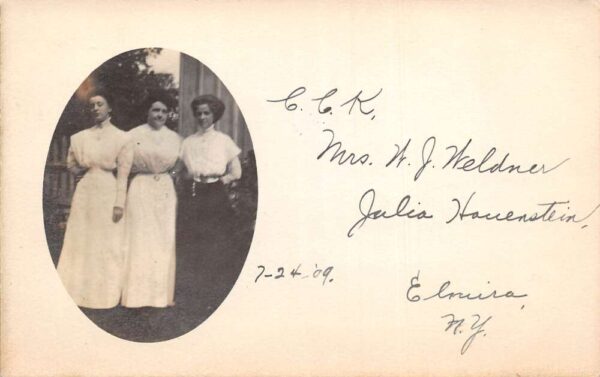 C. C. K,
Mrs. W. J. Weldner
Julia Hauenstein,
7-24-'09.
Elmira,
N.Y.